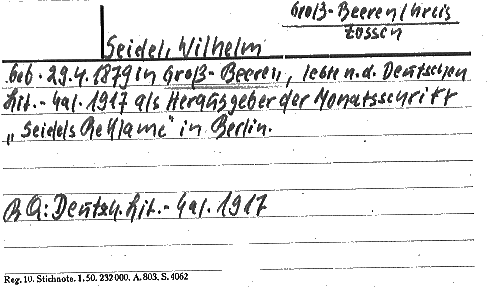 Groß-Beeren/Kreis
Zossen
Seidel, Wilhelm
Geb. 29.4.1879 in Groß-Beeren, lebte n.d. Deutschen
Lit.-Kal. 1917 als Herausgeber der Monatsschrift
„Seidels Reklame" in Berlin.
BQ: Deutsch. Lit.-Kal. 1917
Reg. 10. Stichnote. 1. 50. 232000. A. 803. S. 4062